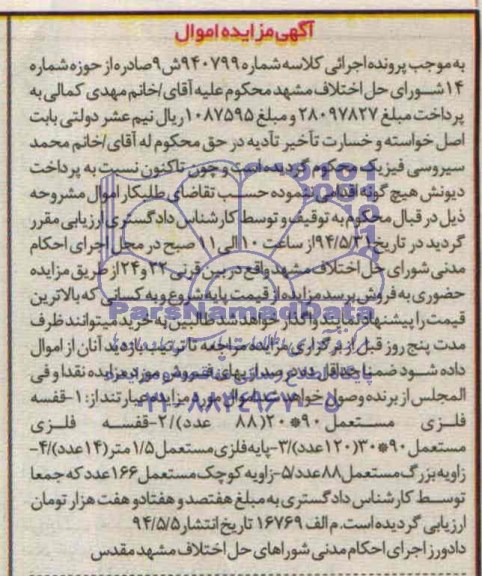 آگهی مزایده اموال
به موجب پرونده اجرائی کلاسه شماره ۹۴۰۷۹۹ش۹صادره از حوزه شماره
۱۴ شــورای حل اختلاف مشهد محکوم علیه آقای/خانم مهدی کمالی به
پرداخت مبلغ ۲۸۰۹۷۸۲۷ و مبلغ ۱۰۸۷۵۹۵ریال نیم عشر دولتی بابت
اصل خواسته و خسارت تأخیر تأدیه در حق محکوم له آقای/خانم محمد
سیروسی فیزیک محکوم گردیده است و چون تاکنون نسبت به پرداخت
دیونش هیچ گونه اقدامی ننموده حسـب تقاضای طلبکار اموال مشروحه
ذیل در قبال محکوم به توقیف و توسط کارشناس دادگستری ارزیابی مقرر
گردید در تاریخ ۹۴/۵/۳۱از ساعت ۱۰الی ۱۱ صبح در محل اجرای احکام
مدنی شورای حل اختلاف مشهد واقع در بین قرنی ۲۲ و۲۴ از طریق مزایده
حضوری به فروش برسد مزایده از قیمت پایه شروع و به کسانی که بالاترین
قیمت را پیشنهاد نمایند واگذار خواهد شد طالبین به خرید میتوانند ظرف
مدت پنج روز قبل از برگزاری مزایده مراجعه تا ترتیب بازدید آنان از اموال
داده شـود ضمنا حداقل ده درصد از بهای فــروش مورد مزایده نقدا و فی
المجلس از برنده وصول خواهد شد اموال مورد مزایده عبارتند از: ۱-قفسه
فلـزی مسـتعمل ۹۰*۲۰(۸۸ عدد)/۲-قفسـه فلـزی
مستعمل ۹۰*۳۰(۱۲۰عدد)/۳-پایه فلزی مستعمل ۱/۵ متر(۱۴عدد)/۴-
زاویه بزرگ مستعمل ۸۸عدد/۵-زاویه کوچک مستعمل ۱۶۶عدد که جمعا
توسـط کارشناس دادگستری به مبلغ هفتصد و هفتادو هفت هزار تومان
ارزیابی گردیده است. م الف ۱۶۷۶۹ تاریخ انتشار ۹۴/۵/۵
دادورز اجرای احکام مدنی شوراهای حل اختلاف مشهد مقدس
ParsNamadData